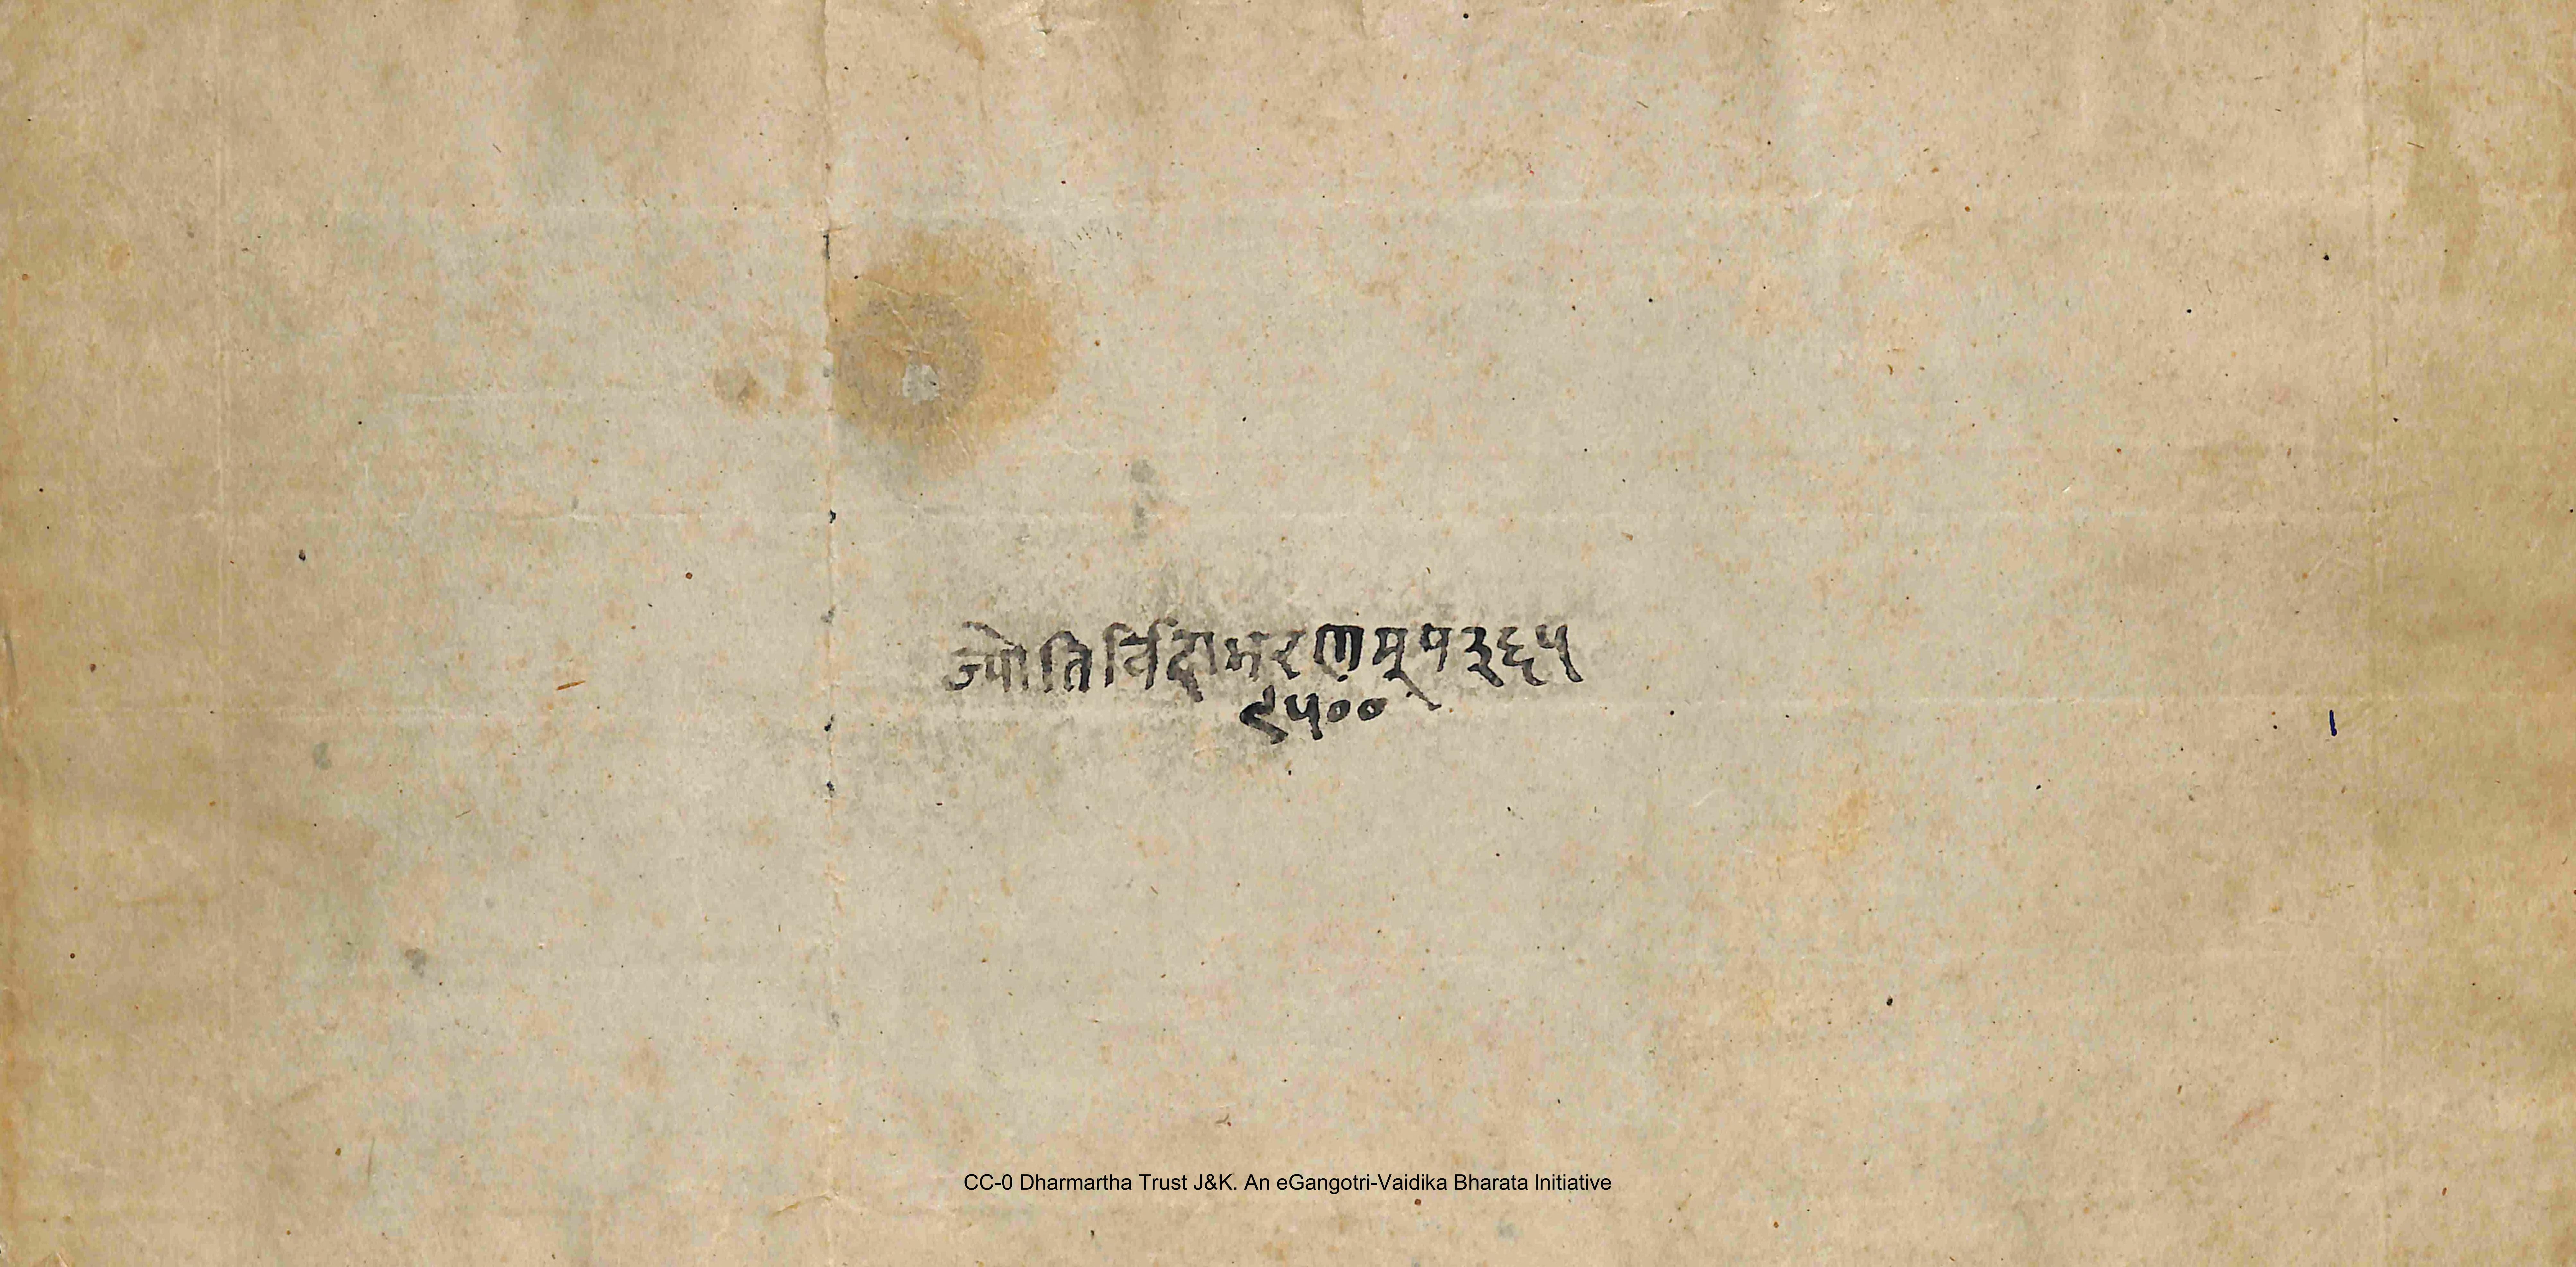 ज्योतिर्विदाभरणम् प ३६५
९५००
CC-0 Dharmartha Trust J&K. An eGangotri-Vaidika Bharata Initiative